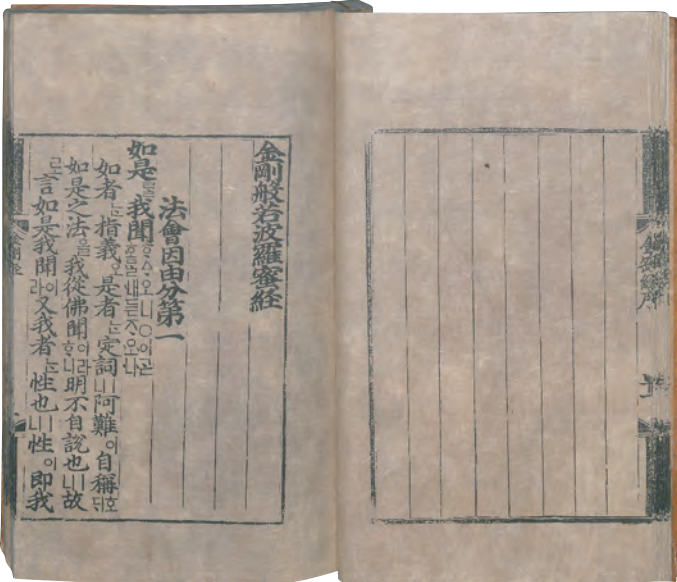 金剛經序
金剛般若波羅蜜経
法會因由分第一
如是ᄅᆞᆯ我聞ᄒᆞᄉᆞ오니○이곧ᄒᆞᆷ을내듣ᄌᆞ오나
如者ᄂᆞᆫ指義오是者ᄂᆞᆫ定詞ㅣ니阿難이自稱호ᄃᆡ
如是之法을我從佛聞이라ᄒᆞ니明不自說也ㅣ니故
로言如是我聞이라又我者ᄂᆞᆫ性也ㅣ니性이即我
金剛經